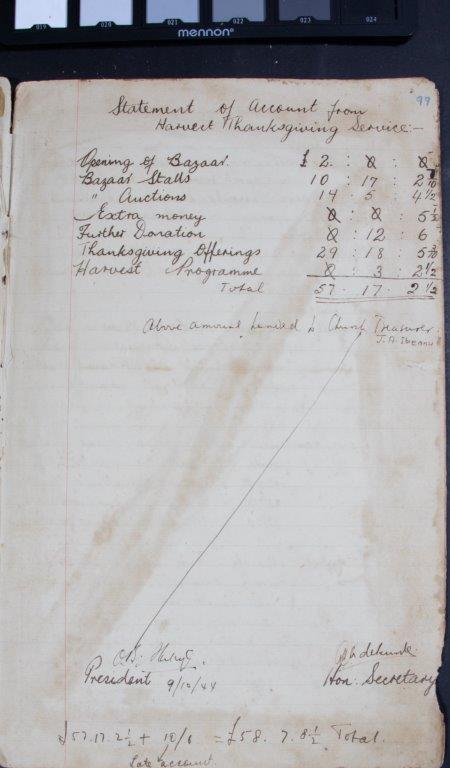 019 020 021 022 023 024
mennon
99
Statement of Account from
Harvest Thanksgiving Service:-
Opening of Bazaar £ 2 : 0 : 0
Bazaar Stalls 10 : 17 : 2
" Auctions 14 . 5 . 4½
Extra money 0 : 0 : 5½
Further Donation 0 : 12 : 6
Thanksgiving Offerings 29 : 18 : 5
Harvest Programme 0 : 3 : 2½
Total 57 . 17 . 2½
Above amount handed to Church Treasurer.
President 9/12/44
Hon. Secretary
£57.17.2½ + 10/6 = £58. 7. 8½ Total.
Late account.